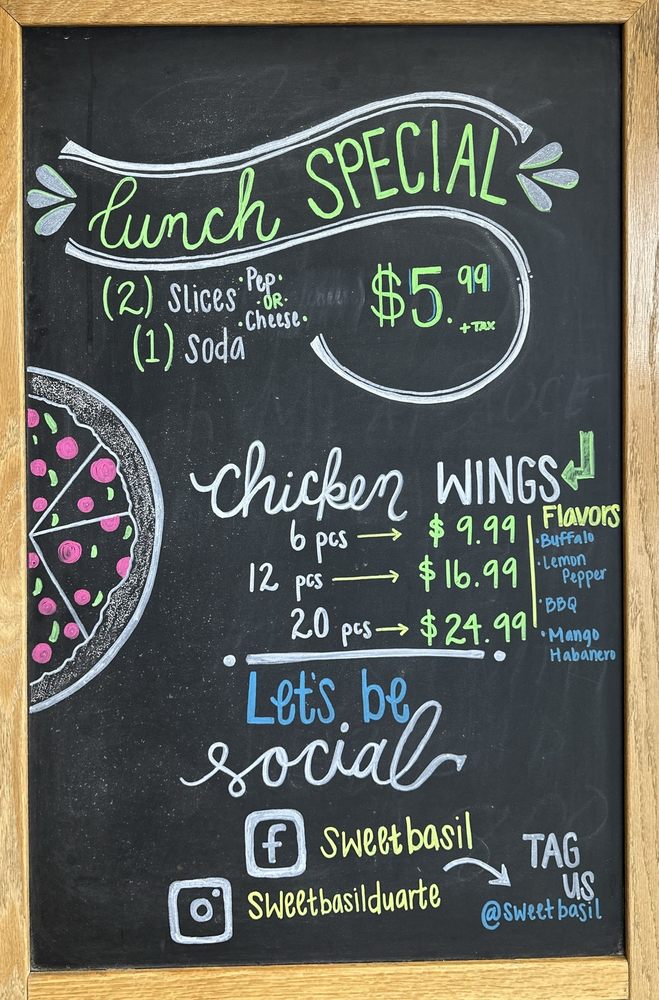 lunch SPECIAL
(2) Slices • Pep •
OR
• Cheese •
(1) Soda
$5.99
+TAX
chicken WINGS
6 pcs → $ 9.99
12 pcs → $ 16.99
20 pcs → $ 24.99
Flavors
• Buffalo
• Lemon
Pepper
• BBQ
• Mango
Habanero
Let's be
social
f sweetbasil
sweetbasilduarte
TAG
US
@sweetbasil